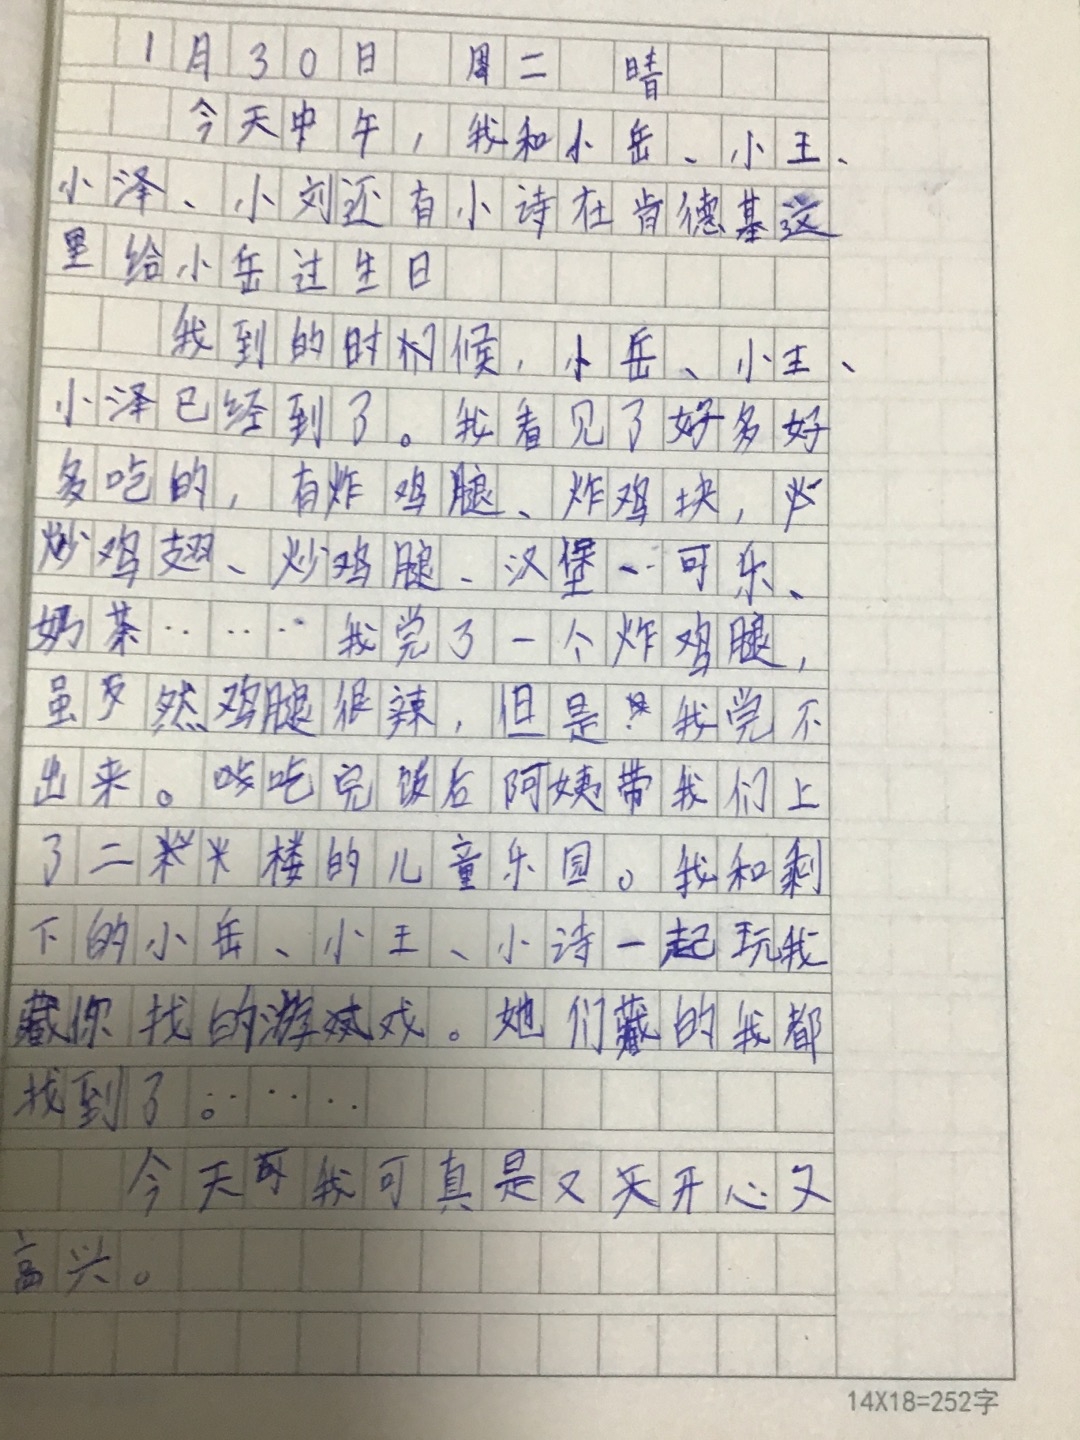 1月30日 周二 晴
今天中午，我和小岳、小王、
小泽、小刘还有小诗在肯德基这
里给小岳过生日
我到的时候，小岳、小王、
小泽已经到了。我看见了好多好
多吃的，有炸鸡腿、炸鸡块，
炒鸡翅、炒鸡腿、汉堡、可乐、
奶茶……我尝了一个炸鸡腿，
虽然鸡腿很辣，但是我尝不
出来。吃完饭后阿姨带我们上
了二楼的儿童乐园。我和剩
下的小岳、小王、小诗一起玩我
藏你找的游戏。她们藏的我都
找到了。……
今天我可真是又开心又
高兴。
14X18=252字